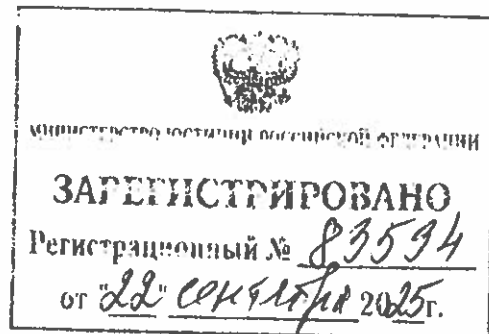 МИНИСТЕРСТВО ЮСТИЦИИ РОССИЙСКОЙ ФЕДЕРАЦИИ
ЗАРЕГИСТРИРОВАНО
Регистрационный № 83594
от "22" сентября 2025г.